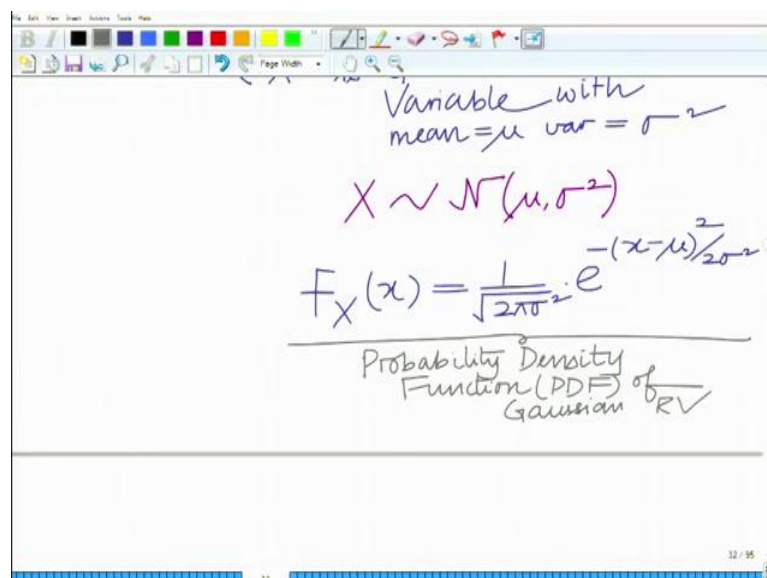 File Edit View Insert Actions Tools Help
B I
Page Width
Variable with
mean = μ var = σ²
X ~ N(μ, σ²)
F_X(x) = 1/√(2πσ²) · e^(-(x-μ)²/2σ²)
Probability Density
Function (PDF) of
Gaussian RV
32 / 95